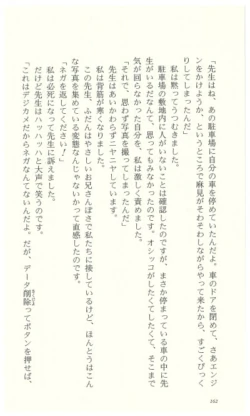 「先生はね、あの駐車場に自分の車を停めていたんだよ。車のドアを閉めて、さあエンジ
ンをかけようか、というところで麻見がそわそわしながらやって来たから、すごくびっく
りしてしまったんだ」
私は黙ってうつむきました。
駐車場の敷地内に人がいないことは確認したのですが、まさか停まっている車の中に先
生がいるだなんて、思ってもみなかったのです。オシッコがしたくてしたくて、そこまで
気が回らなかった自分を、私は激しく責めました。
「それで、思わず写真を撮ってしまったんだ」
先生はあいかわらずニヤニヤしています。
私は背筋が寒くなりました。
この先生、ふだんはやさしいお兄さんぽさで私たちに接しているけど、ほんとうはこん
な写真を集めている変態なんじゃないかって直感したのです。
「ネガを返してください！」
私は必死になって先生に訴えました。
だけど先生はハッハッハと大声で笑うのです。
「これはデジカメだからネガなんてないんだよ。だが、データ削除ってボタンを押せば、
162